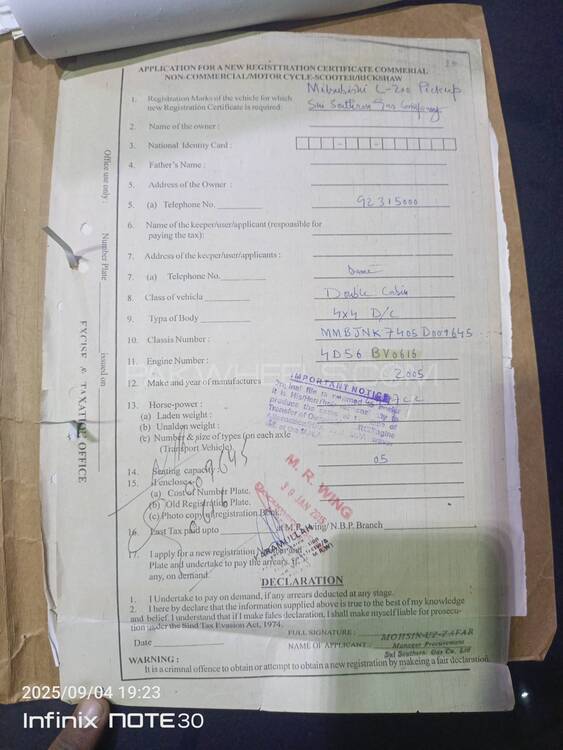 APPLICATION FOR A NEW REGISTTRATION CERTIFICATE COMMERIAL
NON-COMMERCIAL/MOTOR CYCLE-SCOOTER/RICKSHAW
Mitsubishi L-200 Pickup
1. Registration Marks of the vehicle for which
new Registration Certificate is required:
Sui Southern Gas Company
2. Name of the owner:
3. National Identity Card :
4. Father's Name :
5. Address of the Owner :
5. (a) Telephone No. 92315000
6. Name of the keeper/user/applicant (respoasible for
paying the tax):
7. Address of the keeper/user/applicants :
7. (a) Telephone No. Same
8. Class of vehicla Double Cabin
9. Type of Body 4x4 D/C
10. Classis Number : MMBJNK7405D009645
11. Engine Number : 4D56 BV0616
12. Make and year of manufactures 2005
13. Horse-power :
(a) Laden weight :
(b) Unaldon weight :
(c) Number & size of types (on each axle
(Transport Vehicle).
14. Seating capacity 05
15. I enclose
(a) Cost of Number Plate.
(b) Old Registration Plate.
(c) Photo copy of registration Book.
16. Last Tax paid upto of M.R. Wing/N.B.P. Branch
17. I apply for a new registration Number and
Plate and undertake to pay the arrears, if
any, on demand.
IMPORTANT NOTICE
M. R. WING
JAN
DECLARATION
1. I Undertake to pay on demand, if any arrears deducted at any stage.
2. I here by declare that the information supplied above is true to the best of my knowledge
and belief. I understand that if I make fales declaration, I shall make myself liable for prosecu-
tion under the Sind Tax Evusion Act, 1974.
FULL SIGNATURE :
Date
NAME OF APPLICANT :
MOHSIN-UZ-ZAFAR
Manager Procurement
Sui Southern Gas Co. Ltd
WARNING :
It is a criminal offence to obtain or attempt to obtain a new registration by makeing a fair declaration.
Office use only :
Number Plate
issued on
EXCISE & TAXATION OFFICE
PAKWHEELS.COM
2025/09/04 19:23
Infinix NOTE30